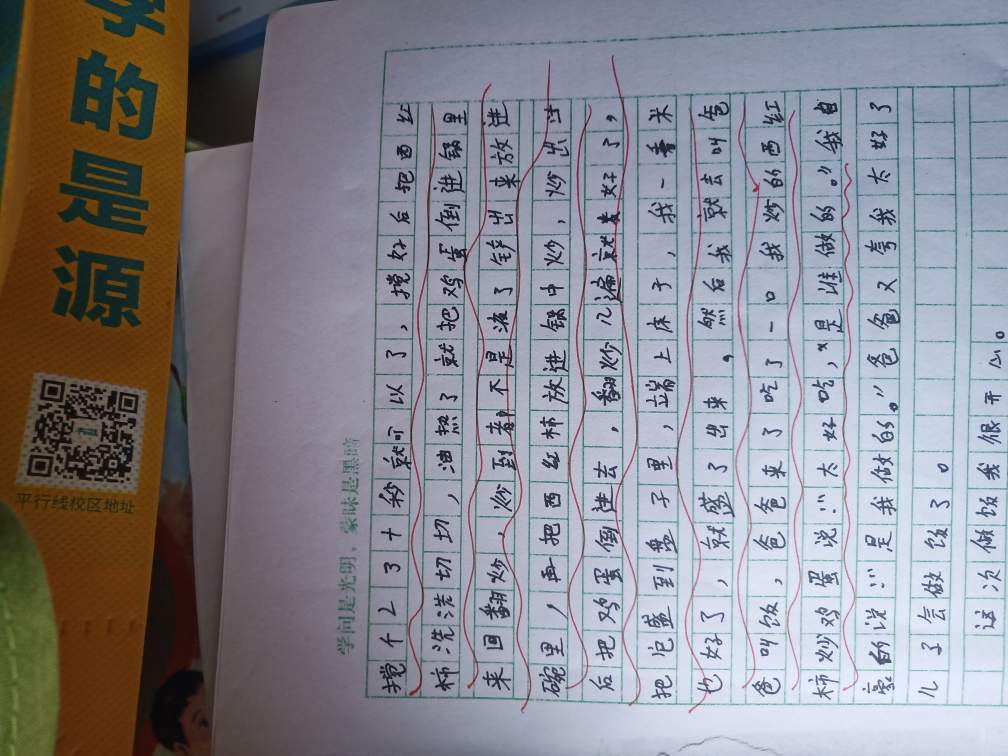 学的是
源
平行线校区地址
学问是光明，蒙昧是黑暗
搅个2 3十秒就可以了，搅好后把西红
柿洗洗切切，油热了就把鸡蛋倒进锅里
来回翻炒，炒到都不是液了铲出来放进
碗里，再把西红柿放进锅中炒，炒出汁
后把鸡蛋倒进去，翻炒几遍就好了，
把它盛到盘子里，端上床子，我一看米
也好了，就盛了出来，然后我就去叫爸
爸叫饭，爸爸来了吃了一口我炒的西红
柿炒鸡蛋说：“太好吃，是谁做的。”我自
豪的说：“是我做的。”爸爸又夸我太好了
儿了会做饭了。
这次做饭我很开心。